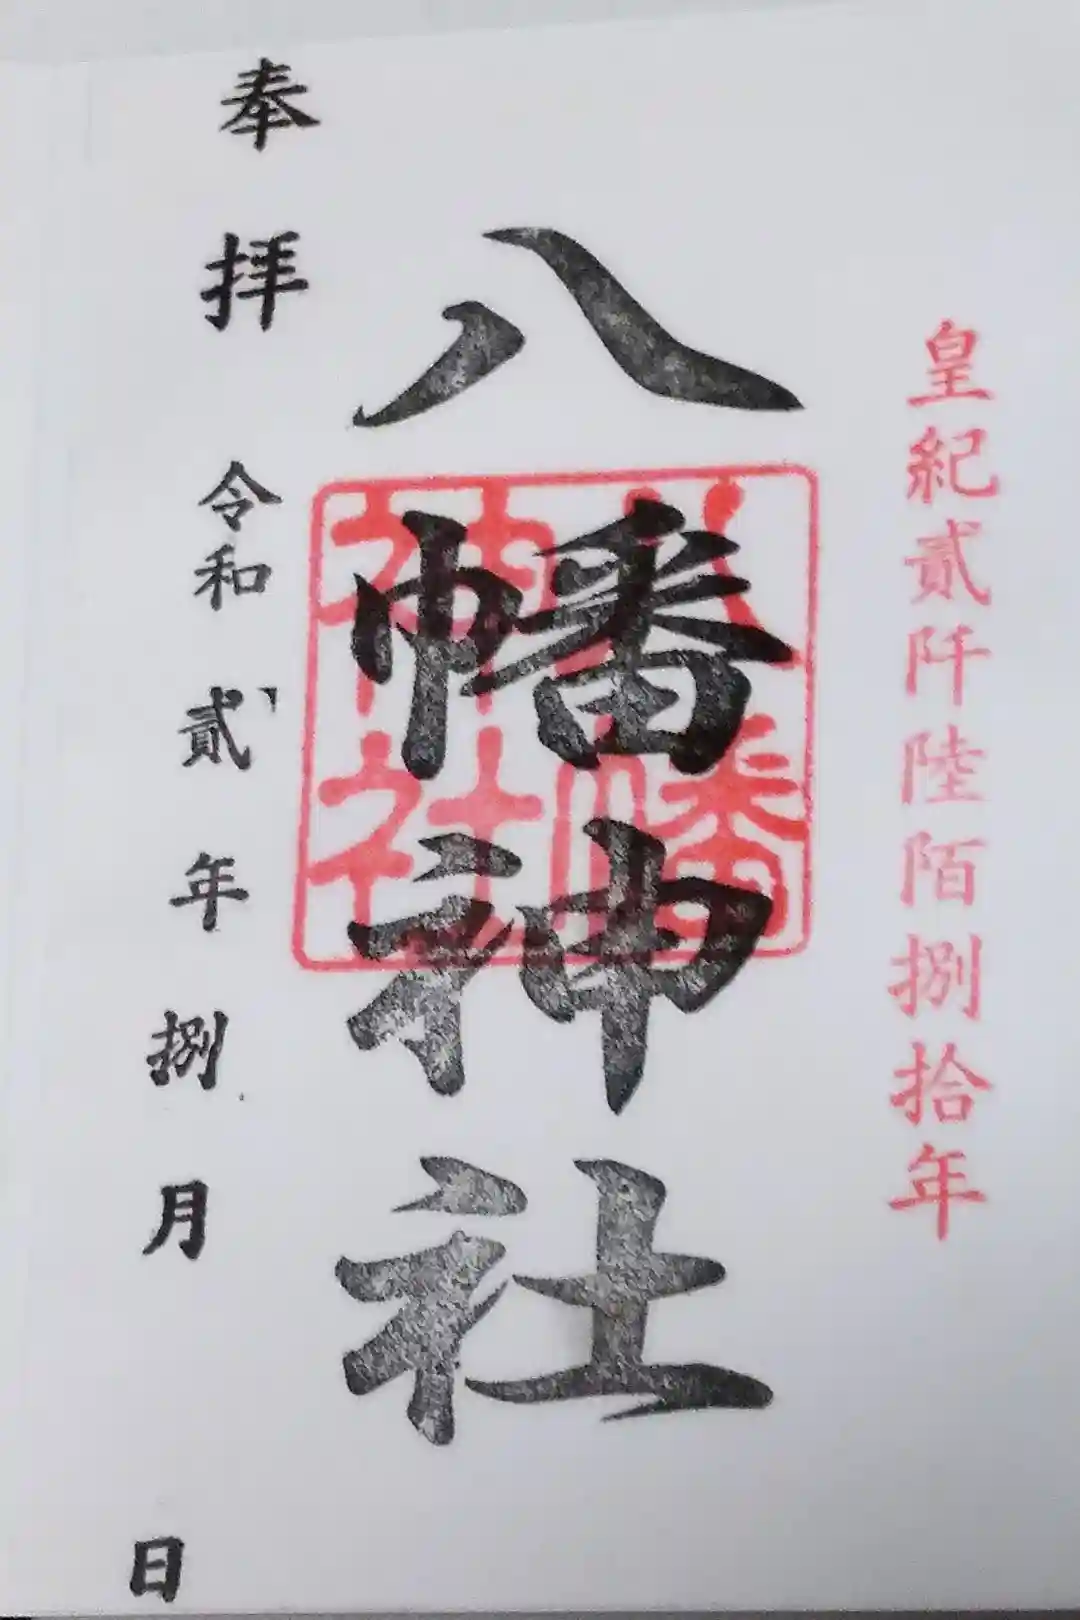 皇紀貳阡陸陌捌拾年
八幡神社
八幡
神社
奉拝
令和貳年捌月
日